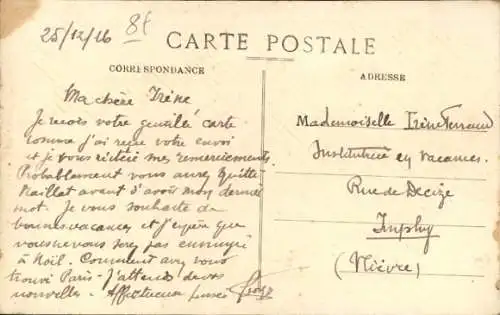 25/12/16
8f
CARTE POSTALE
CORRESPONDANCE
ADRESSE
Ma chère Irène
Je reçois votre gentille carte
comme j'ai reçu votre envoi
et je vous réitère mes remerciements.
Probablement vous aurez quitté
avant d'avoir mon dernier
mot. Je vous souhaite de
bonnes vacances et j'espère que
vous ne vous serez pas ennuyée
à Noël. Comment avez vous
trouvé Paris - J'attends de vos
nouvelles. Affectueuse pensée
Mademoiselle Irène
Institutrice en vacances
Rue de Decize
Imphy
(Nièvre)